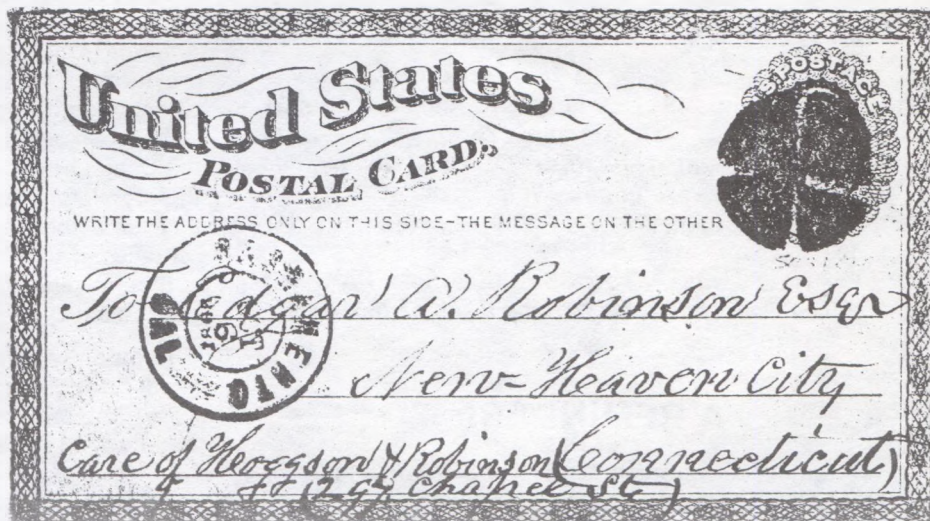 United States
POSTAL CARD.
U.S. POSTAGE
WRITE THE ADDRESS ONLY ON THIS SIDE-THE MESSAGE ON THE OTHER
SACRAMENTO
CAL
To Edgar A. Robinson Esqr
New-Heaven City
Care of Hoggson & Robinson (Connecticut)
Chapel St)